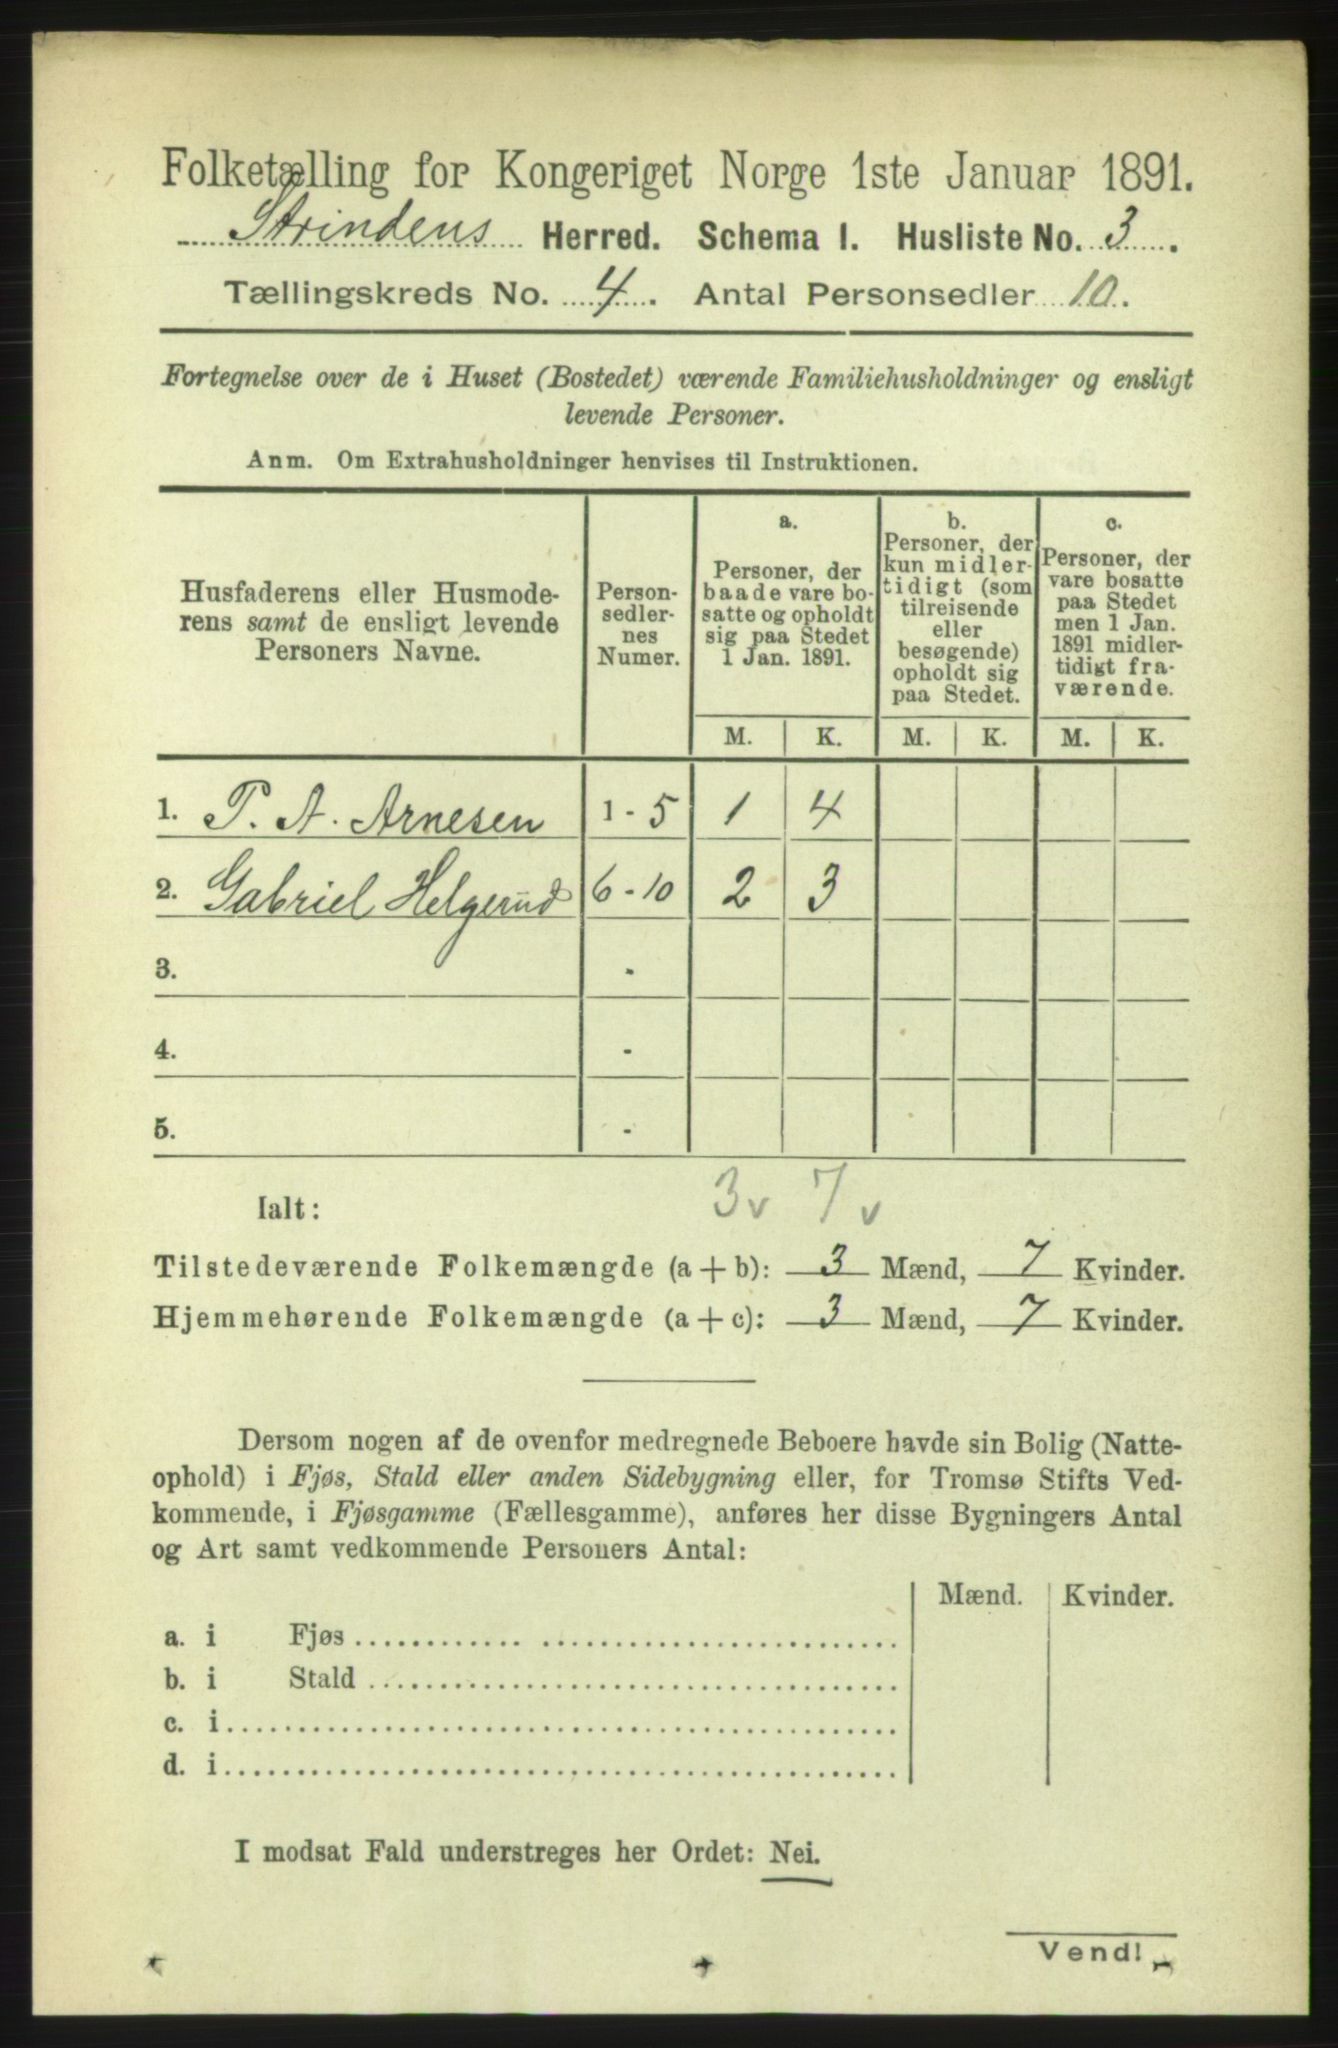 Folketælling for Kongeriget Norge 1ste Januar 1891.
Strindens Herred. Schema I. Husliste No. 3.
Tællingskreds No. 4. Antal Personsedler 10.
Fortegnelse over de i Huset (Bostedet) værende Familiehusholdninger og ensligt
levende Personer.
Anm. Om Extrahusholdninger henvises til Instruktionen.
Husfaderens eller Husmode-
rens samt de ensligt levende
Personers Navne.
Person-
sedler-
nes
Numer.
a.
Personer, der
baade vare bo-
satte og opholdt
sig paa Stedet
1 Jan. 1891.
b.
Personer, der
kun midler-
tidigt (som
tilreisende
eller
besøgende)
opholdt sig
paa Stedet.
c.
Personer, der
vare bosatte
paa Stedet
men 1 Jan.
1891 midler-
tidigt fra-
værende.
M. K. M. K. M. K.
1. P. A. Arnesen 1 - 5 1 4
2. Gabriel Helgerud 6 - 10 2 3
3. -
4. -
5. -
Ialt: 3 v 7 v
Tilstedeværende Folkemængde (a + b): 3 Mænd, 7 Kvinder.
Hjemmehørende Folkemængde (a + c): 3 Mænd, 7 Kvinder.
Dersom nogen af de ovenfor medregnede Beboere havde sin Bolig (Natte-
ophold) i Fjøs, Stald eller anden Sidebygning eller, for Tromsø Stifts Ved-
kommende, i Fjøsgamme (Fællesgamme), anføres her disse Bygningers Antal
og Art samt vedkommende Personers Antal:
Mænd. Kvinder.
a. i Fjøs
b. i Stald
c. i
d. i
I modsat Fald understreges her Ordet: Nei.
Vend!